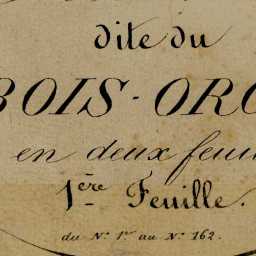 dite du
BOIS-ORC
en deux feui
1ère Feuille.
du N° 1er au N° 162.